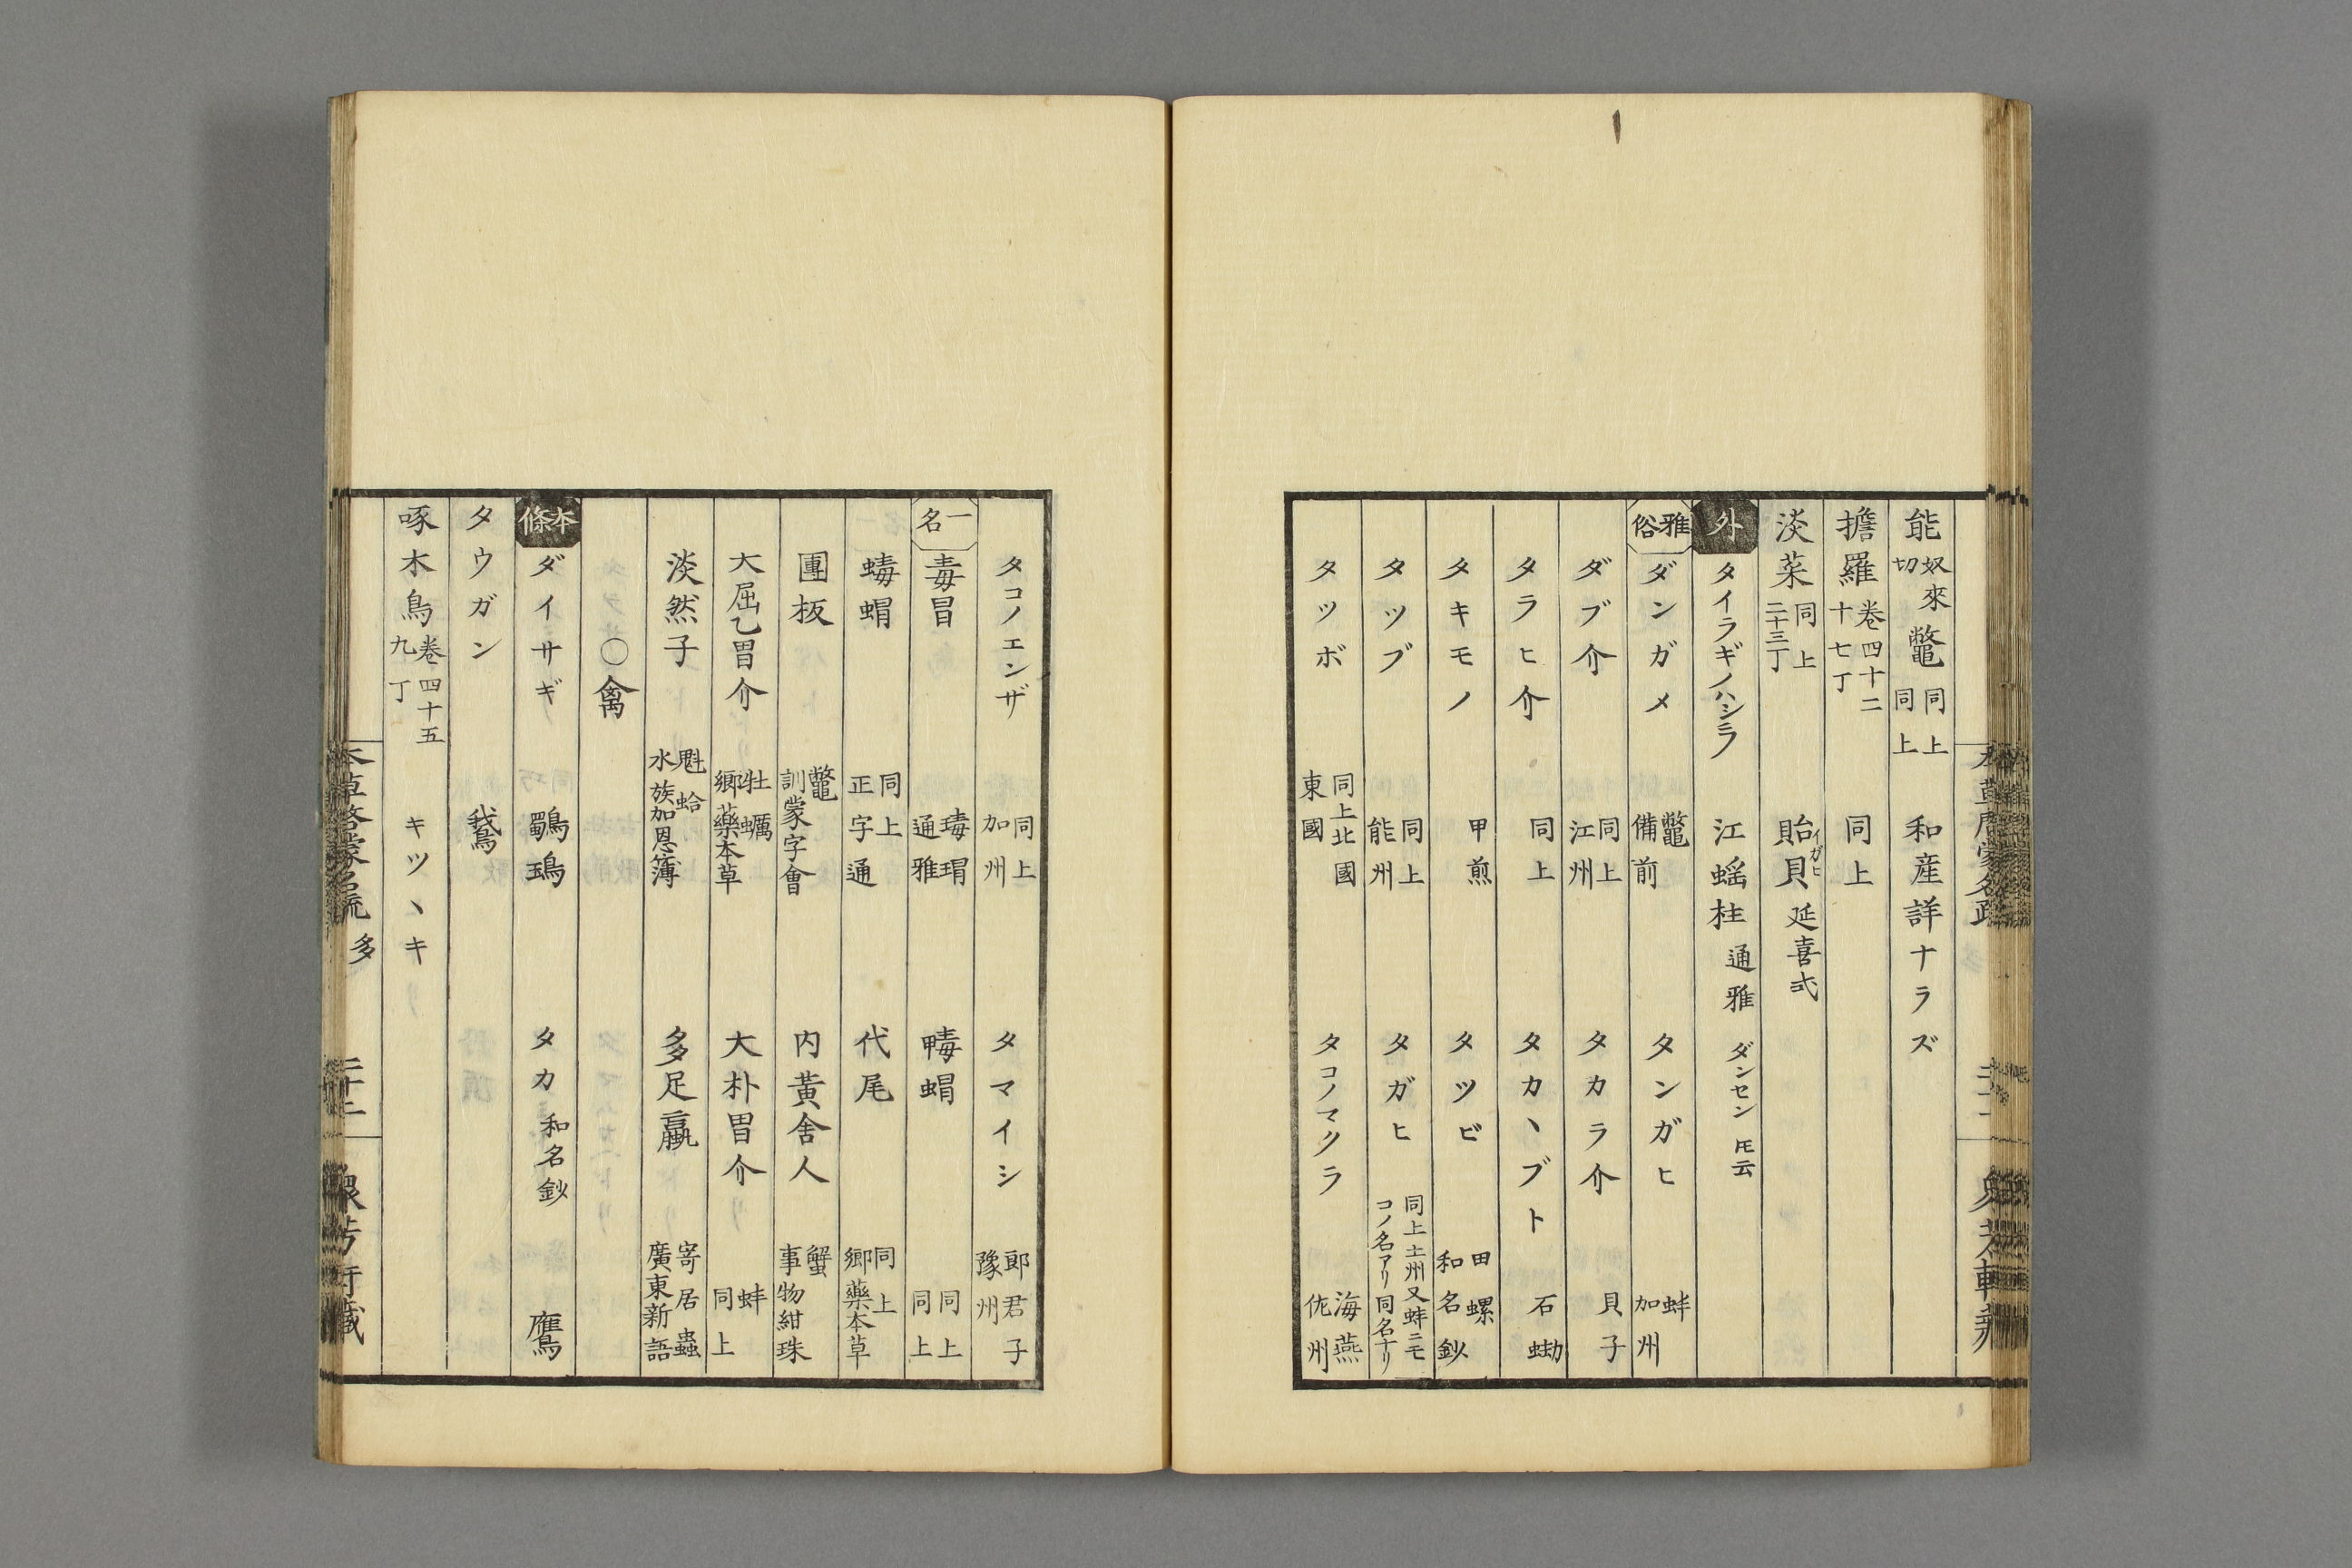 能 奴來切 鼈 同上同上 和産詳ナラズ
擔羅 卷四十二十七丁 同上
淡菜 同上二十三丁 貽貝 イガヒ 延喜式
外 タイラギノハシラ 江蜯柱 通雅 ダンセン 氏云
雅俗 ダンガメ 鼈備前 タンガヒ 蚌加州
ダブ介 同上江州 タカラ介 貝子
タラヒ介 同上 タカヽブト 石蜐
タキモノ 甲煎 タツビ 田螺和名鈔
タツブ 同上能州 タガヒ 同上土州又蚌ニモコノ名アリ同名ナリ
タツボ 同上北國東國 タコノマクラ 海燕佐州
タコノエンザ 同上加州 タマイシ 郎君子豫州
一名 毒冒 瑇瑁通雅 蝳蝐 同上同上
蝳蝐 同上正字通 代尾 同上鄕藥本草
團板 鼈訓蒙字會 内黃舍人 蟹事物紺珠
大屈乙冑介 牡蠣鄕藥本草 大朴冑介 蚌同上
淡然子 魁蛤水族加恩簿 多足蠃 寄居蟲廣東新語
〇禽
本條 ダイサギ 鸀鳿 タカ 和名鈔 鷹
タウガン 鵞
啄木鳥 卷四十五九丁 キツヽキ
本草啓蒙名疏 多 二十二